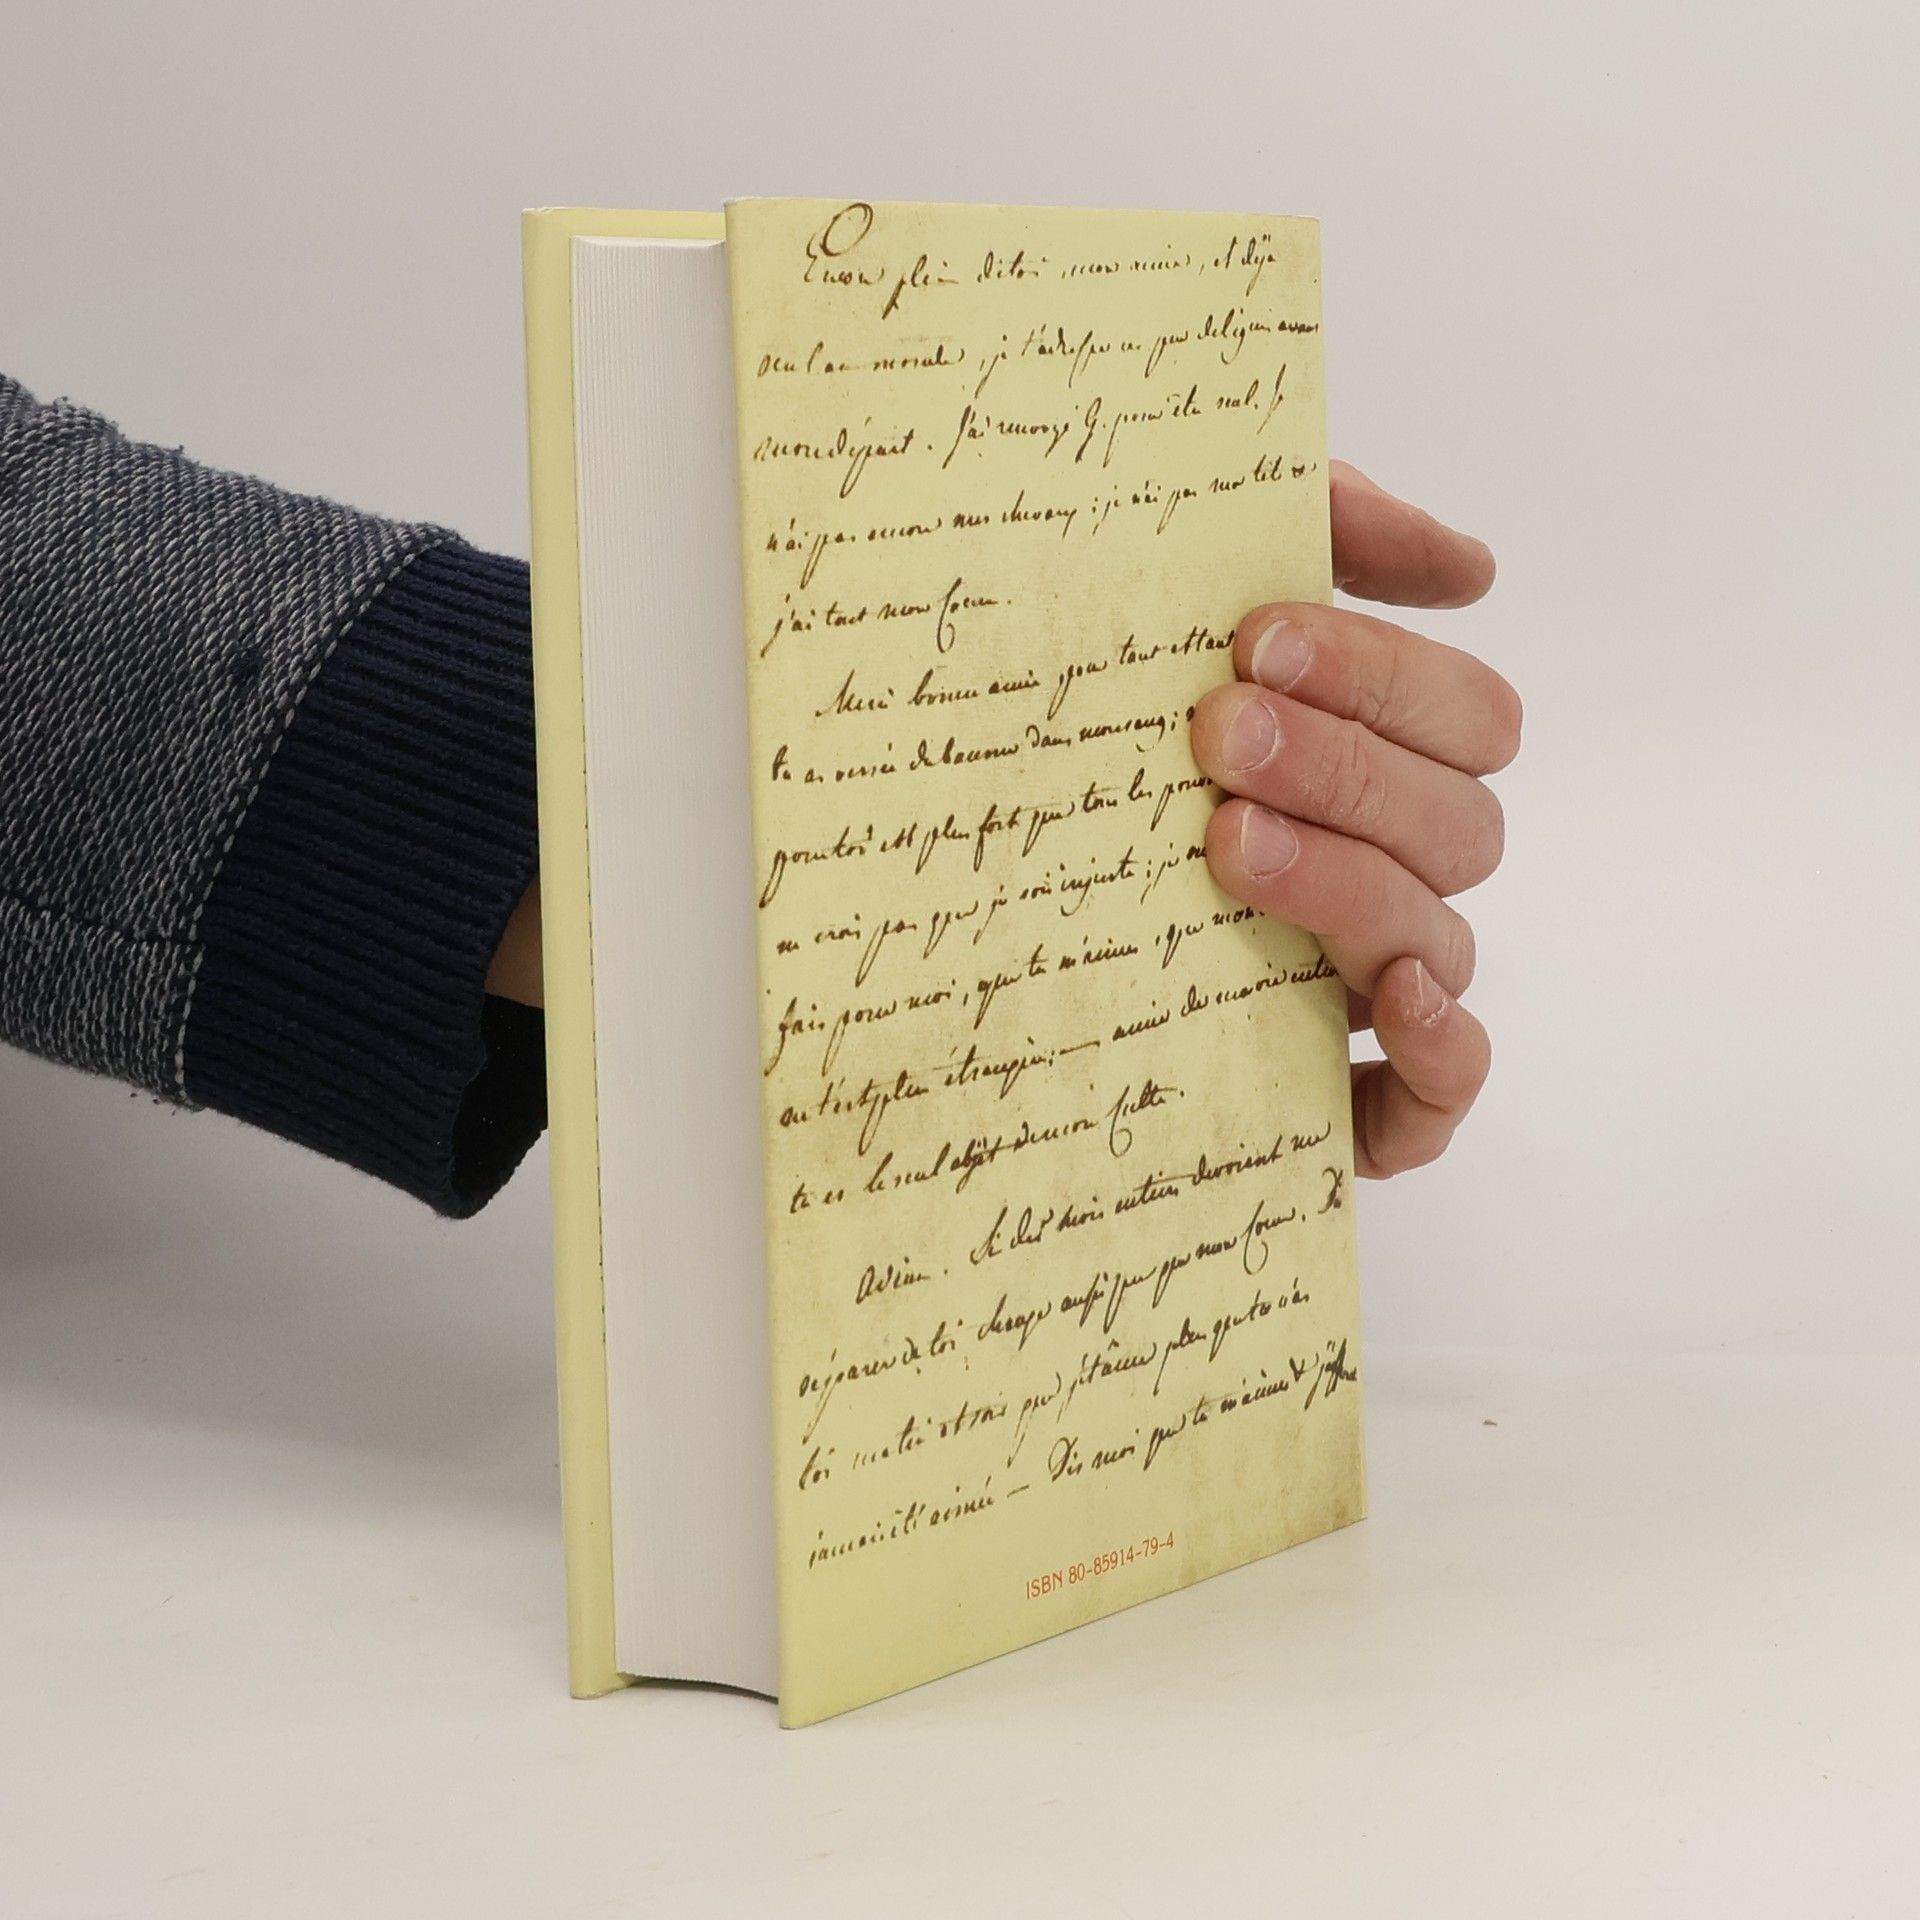 Encore plein de toi, mon amie, et déja
seul au monde, je t'adresse ce peu de lignes avant
mon départ. J'ai renvoyé G. pour être seul. Je
n'ai pas encore mes chevaux; je n'ai pas ma tête &
j'ai tout mon Coeur.
Merci bonne amie pour tant et tant
tu as versé du baume dans mon sang;
pour toi est plus fort que tous les pouvoi
ne crois pas que je sois injuste; je ne
fais pour moi, que tu m'aimes, que mon
ne t'est plus étrangère; — amie de ma vie entière
tu es le seul objet de mon Culte.
Adieu. Si des mois entiers devroient me
séparer de toi change aussi peu que mon Coeur. Di
toi matin et soir que je t'aime plus que tu n'as
jamais été aimée — Dis moi que tu m'aimes &
ISBN 80-85914-79-4